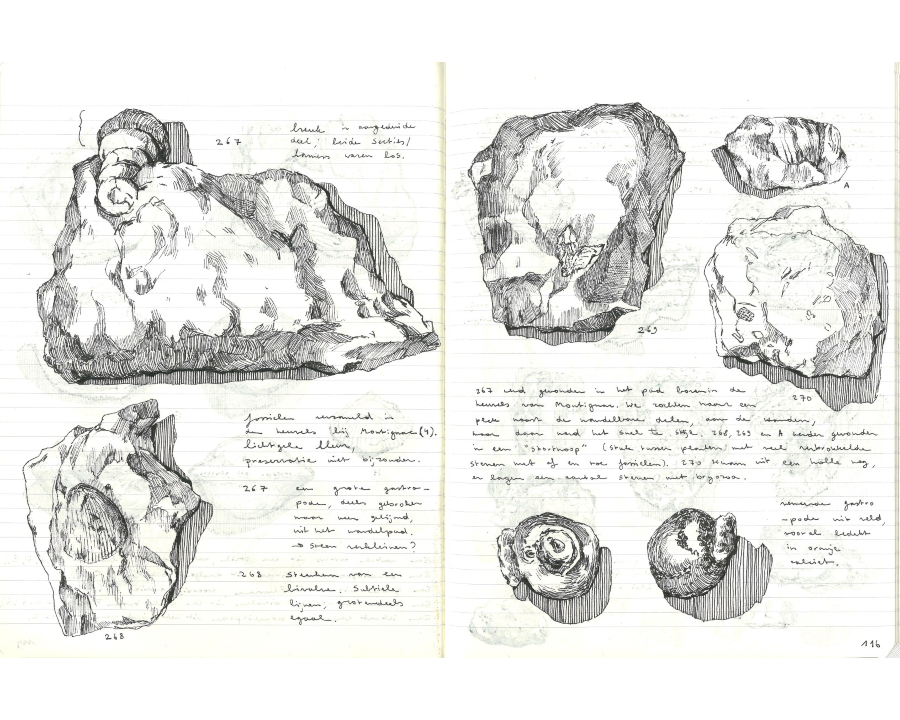 267
breuk is aangeduide
deel; beide secties/
waren los.
fossielen verzameld in
de heuvels bij Montignac (4).
lichtgele kleur,
preservatie niet bijzonder.
267 een grote gastro-
pode, deels gebroken
maar weer gelijmd,
uit het wandelpad.
→ steen verkleinen?
268 steenkern van een
bivalve. Subtiele
lijnen, grotendeels
egaal.
268
A
269
270
267 werd gevonden in het pad bovenin de
heuvels van Montignac. We zochten naar een
plek naast de wandelbare delen, aan de wanden,
maar daar werd het snel te steil. 268, 269 en A werden gevonden
in een "stortwoop" (stuk tussen planten met veel verbrokkelde
stenen met af en toe fossielen). 270 kwam uit een holle weg,
er lagen een aantal stenen met bryozoa.
gastro
-pode uit veld,
vooral bedekt
in oranje
calciet.
116